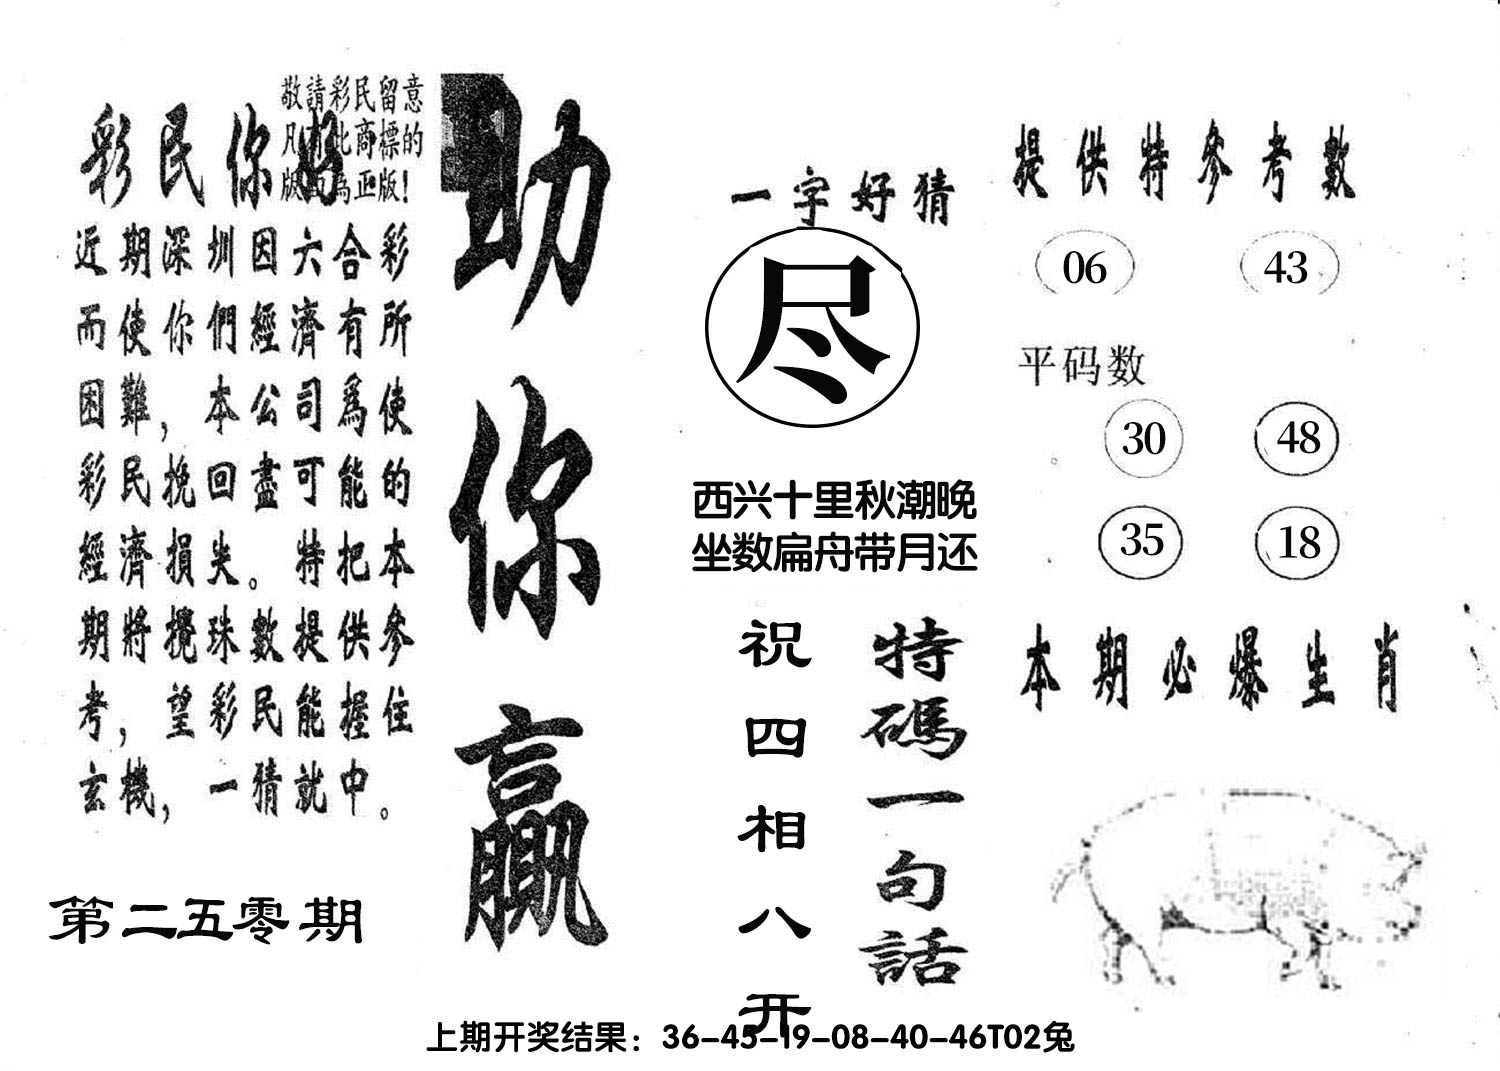 敬請彩民留意
凡有此商標的
版面為正版！
彩民你好
近期深圳因六合彩
而使你們經濟有所
困難，本公司爲使
彩民挽回盡可能的
經濟損失。特把本
期將攪珠數提供參
考，望彩民能握住
玄機，一猜就中。
第二五零期
助你贏
一字好猜
尽
西兴十里秋潮晚
坐数扁舟带月还
特碼一句話
祝四相八开
提供特參考數
06 43
平码数
30 48
35 18
本期必爆生肖
上期开奖结果：36-45-19-08-40-46T02兔